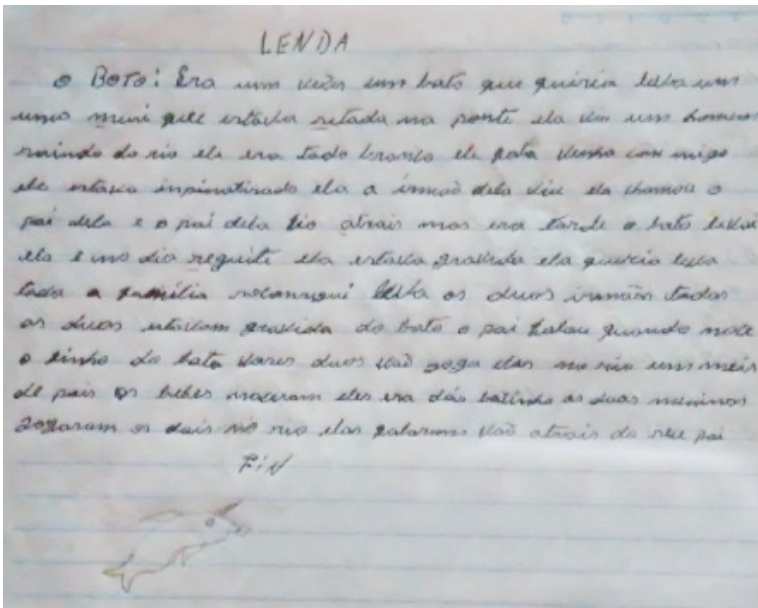 LENDA
o BOTO: Era um vezes um boto que quiria leva um
uma mini que estava setada na ponte ela viu um homem
saindo do rio ele era todo branco ele fala venha com migo
ele estava inpinotirado ela a irmão dela viu ela chamou o
pai dela e o pai dela fio atrais mas era tarde o boto levou
ela e uns dia seguite ela estava gravida ela queria leva
toda a familia leva os duas irmãos todas
as duas estavam gravida do boto o pai falou quando nace
o finho do boto vores duas vão goga elas no rio um meis
de pois os bebes naceram eles era dois botinho as duas meninas
gogaram os dois no rio elas falarams vão atrais do seu pai
FIN